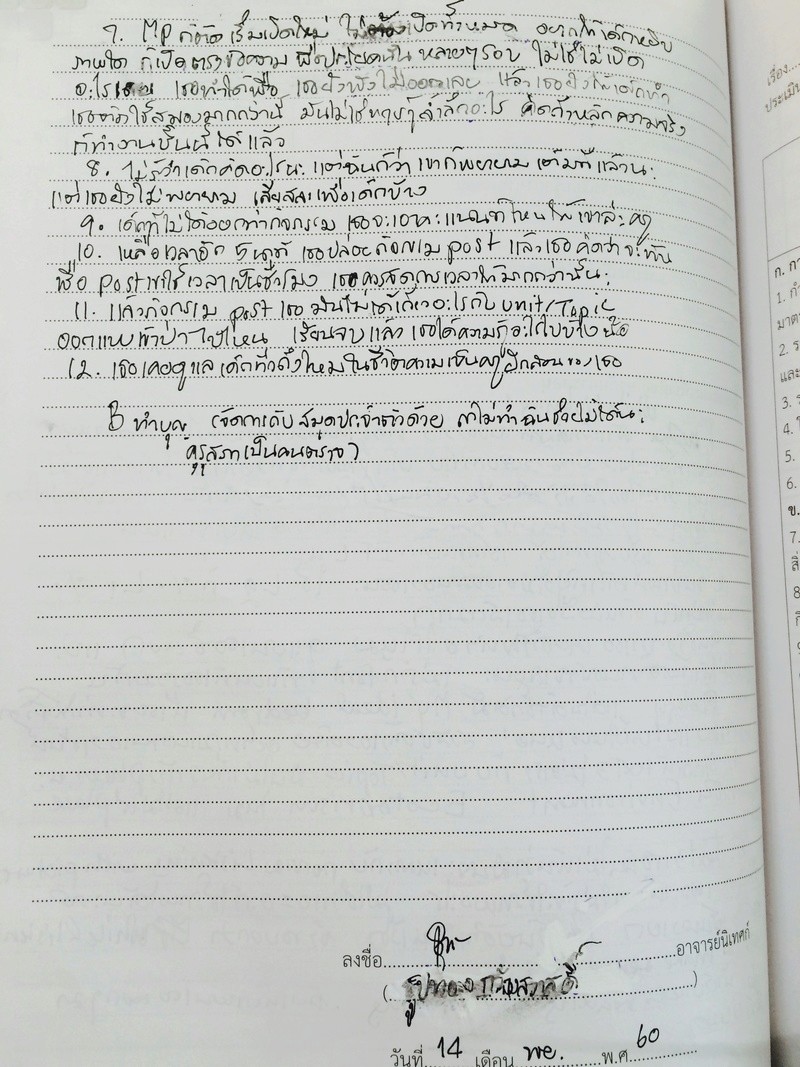 7. MP ก็ตัด เริ่มเปิดใหม่ ไม่ต้องเปิดทั้งหมด อยากให้เด็กหยิบ
ภาพใด ก็เปิดตรงข้อความ ที่ประโยคนั้น หลายๆรอบ ไม่ใช่ไม่เปิด
อะไรเลย เธอทำใด้พี่อ เธอยังฟังไม่ออกเลย แล้วเธอยังให้เด็กทำ
เธอต้องใช้สมองมากกว่านี้ มันไม่ใช่ อะไร คิดถ้าหลักความจริง
ก็ทำงานชิ้นนี้ได้ แล้ว
8. ไม่รู้ว่าเด็กคิดอะไรนะ แต่ฉันก็ว่า เขาก็พยายาม เต็มที่แล้วนะ
แต่เธอยังไม่พยายาม เสียสละเพื่อเด็กบ้าง
9. เด็กที่ไม่ได้ออกทำกิจกรรม เธอจะเอาคะแนนที่ไหนให้เขาล่ะครู
10. เหลือเวลาอีก 5 นาที เธอปล่อยกิจกรรม post แล้วเธอคิดว่าจะทัน
หรือ post เขาใช้เวลาเป็นชั่วโมง เธอควรจัดการเวลาให้มากกว่านั้น;
11. แล้วกิจกรรม post เธอ มันไม่ได้เกี่ยวอะไรกับ unit/Topic
ออกแบบเข้าป่าไปไหน เรียนจบแล้ว เธอได้ความรู้อะไรไปบ้าง
12. เธอเคยดูแลเด็กทั่วถึงไหมในชีวิตความเป็นครูฝึกสอนของเธอ
B ทำบุญ (จัดการกับสมุดประจำตัวด้วย ถ้าไม่ทำฉันช่วยไม่ได้นะ;
คุรุสภาเป็นคนตรวจ)
ลงชื่อ อาจารย์นิเทศก์
วันที่ 14 เดือน พย. พ.ศ. 60
เรื่อง...
ประเมิน
ก. กา
1. กำ
มาต
2. ร
และ
3. ร
4. ใ
5.
6.
ข.
7.
8